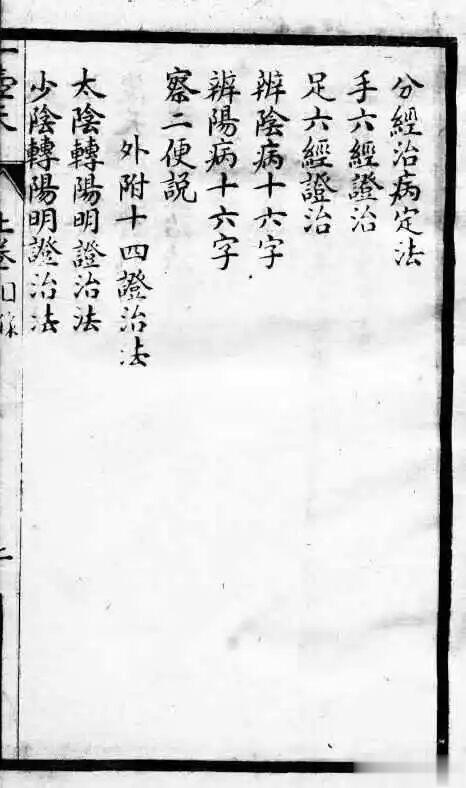 分經治病定法
手六經證治
足六經證治
辨陰病十六字
辨陽病十六字
察二便説
外附十四證治法
太陰轉陽明證治法
少陰轉陽明證治法
上卷目錄